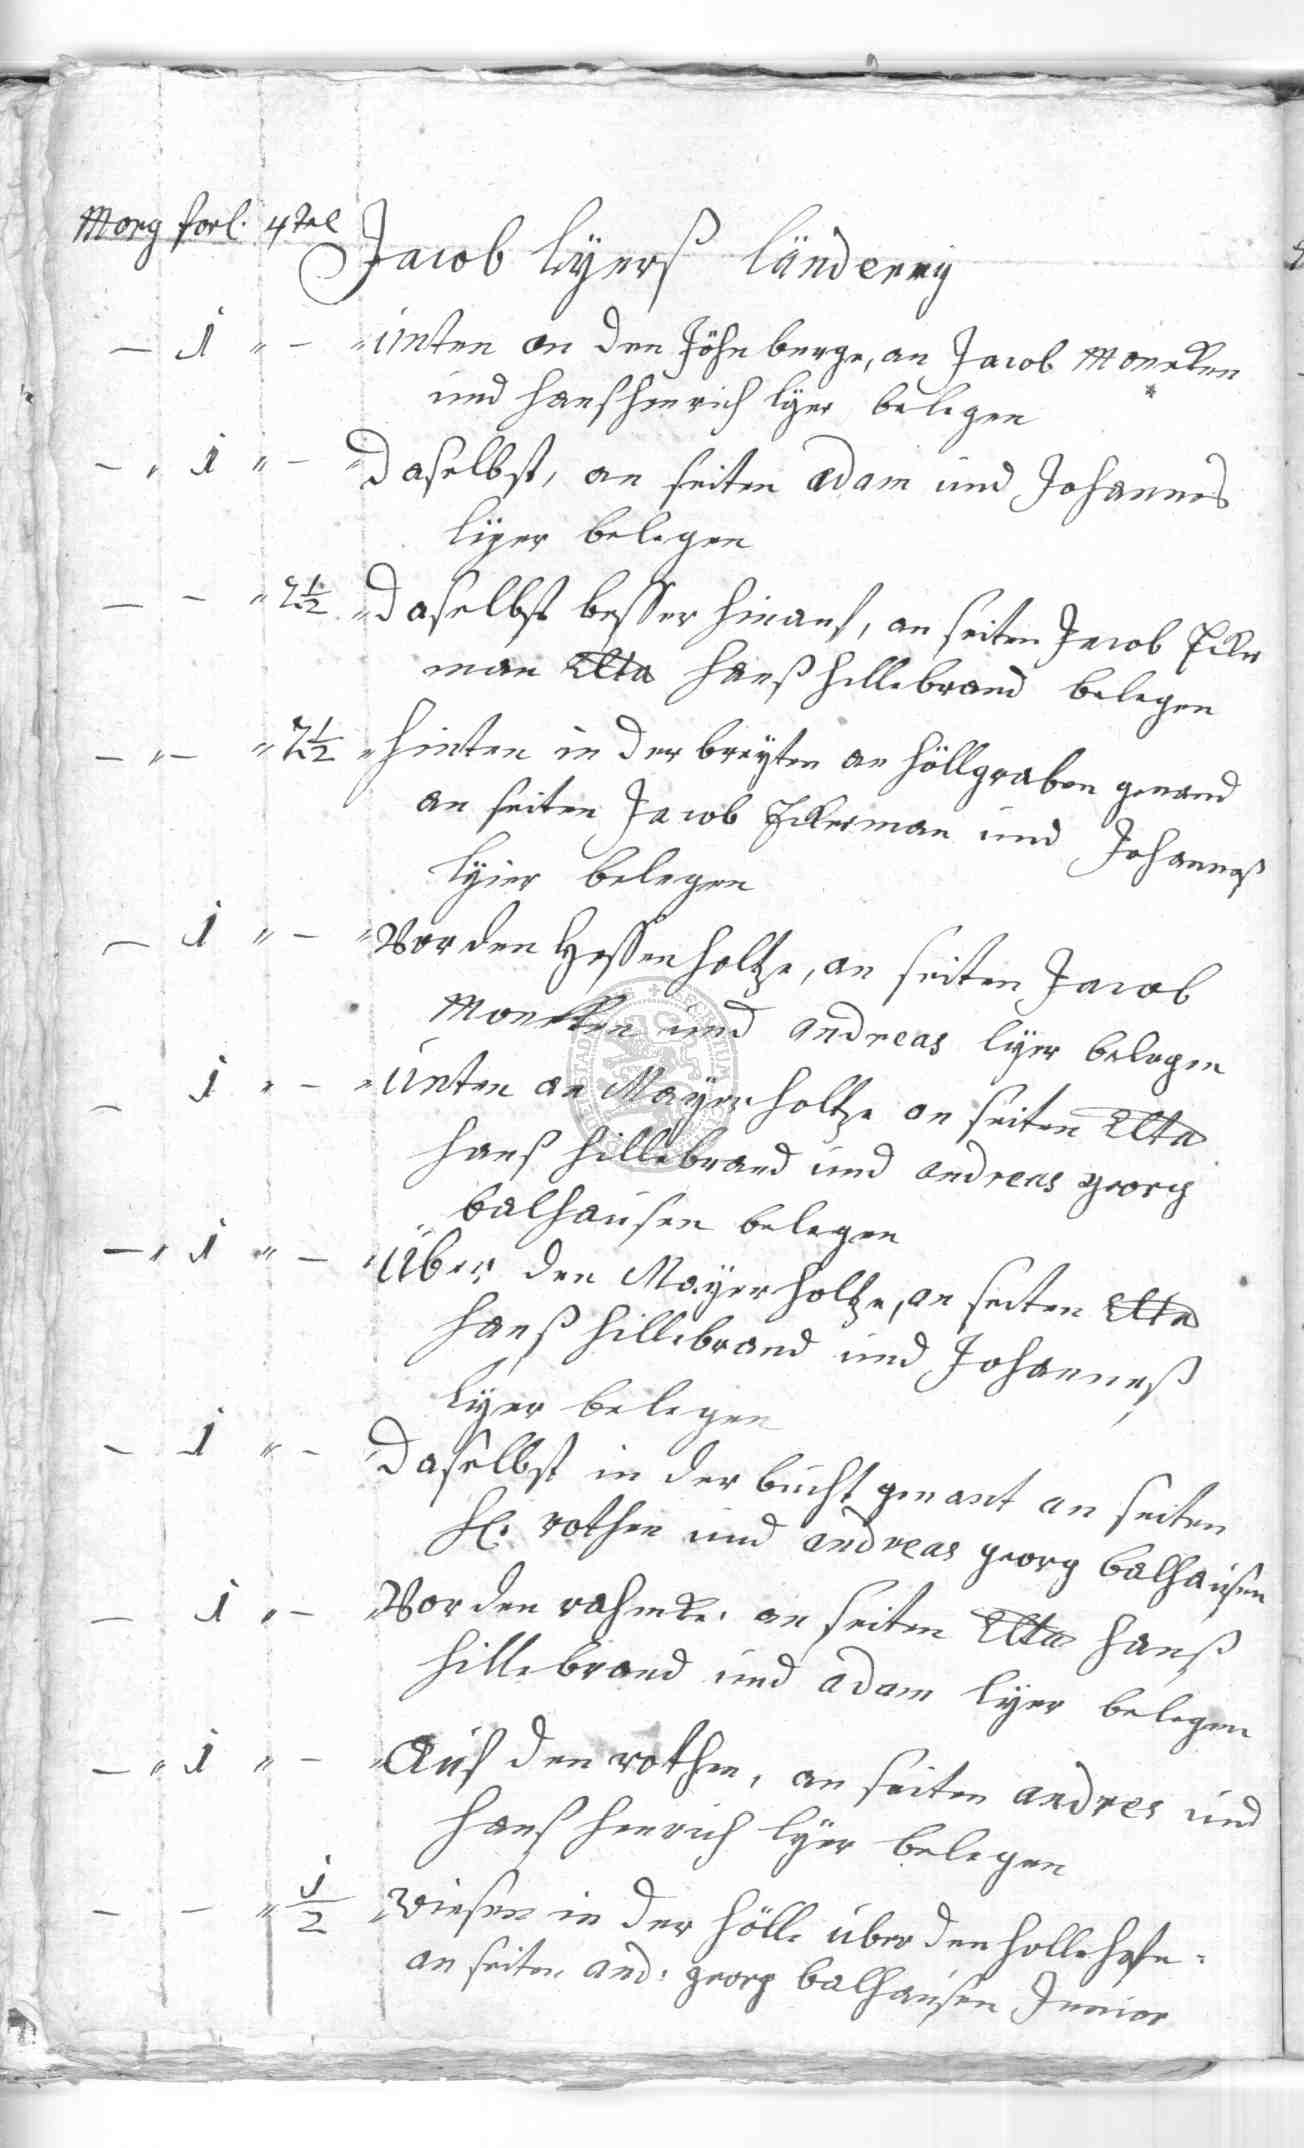 Morg forl. 4tel
Jacob lÿerß länderey
— 1 " — " Unten an den Föhr berge, an Jacob Moneken
und hanshenrich lÿer belegen
— " 1 " — " Daselbst, an seiten adam und Johannes
lÿer belegen
— — " 2½ " Daselbst besser hinauf, an seiten Jacob Ecker
man hanß hillebrand belegen
— " — " 2½ " hinten in der breÿten an höllgraben genand
an seiten Jacob Eckerman und Johanneß
lÿer belegen
— 1 " — " Vor den Hessenholtze, an seiten Jacob
Moneken und andreas lÿer belegen
— 1 " — " Unten an Mayer holtze an seiten
hanß hillebrand und andreas georg
balhausen belegen
— " 1 " — " Über den Mayerholtze, an seiten
hanß hillebrand und Johanneß
lÿer belegen
— 1 " — " Daselbst in der bucht genant an seiten
H. rothen und andreas georg balhausen
— 1 " — " Vor den an seiten hanß
hillebrand und adam lÿer belegen
— " 1 " — " Auf den rothen, an seiten andres und
hanß henrich lÿer belegen
— — " ½ " wiesen in der hölle über den
an seiten and: georg balhausen Junior